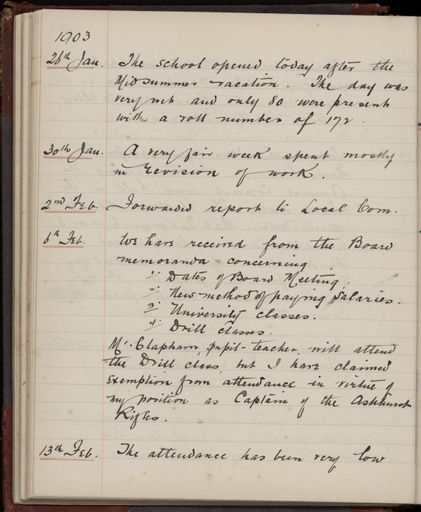 1903
26th Jan. The school opened today after the
Midsummer vacation. The day was
very wet and only 80 were present
with a roll number of 172.
30th Jan. A very fair week spent mostly
in revision of work.
2nd Feb. Forwarded report to Local Com.
6th Feb. We have received from the Board
memoranda concerning
1. Dates of Board Meeting.
2. New method of paying Salaries.
3. University classes.
4. Drill classes.
Mr. Clapham, pupil-teacher, will attend
the Drill class, but I have claimed
exemption from attendance in virtue of
my position as Captain of the Ashhurst
Rifles.
13th Feb. The attendance has been very low